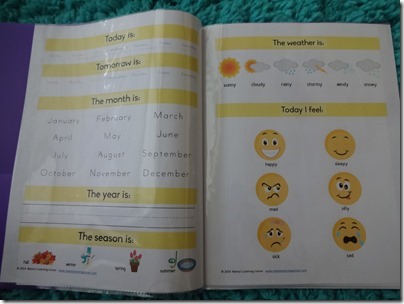 Today is:
Tomorrow is:
The month is:
January February March
April May June
July August September
October November December
The year is:
The season is:
fall winter spring summer
The weather is:
sunny cloudy rainy stormy windy snowy
Today I feel:
happy sleepy
mad silly
sick sad